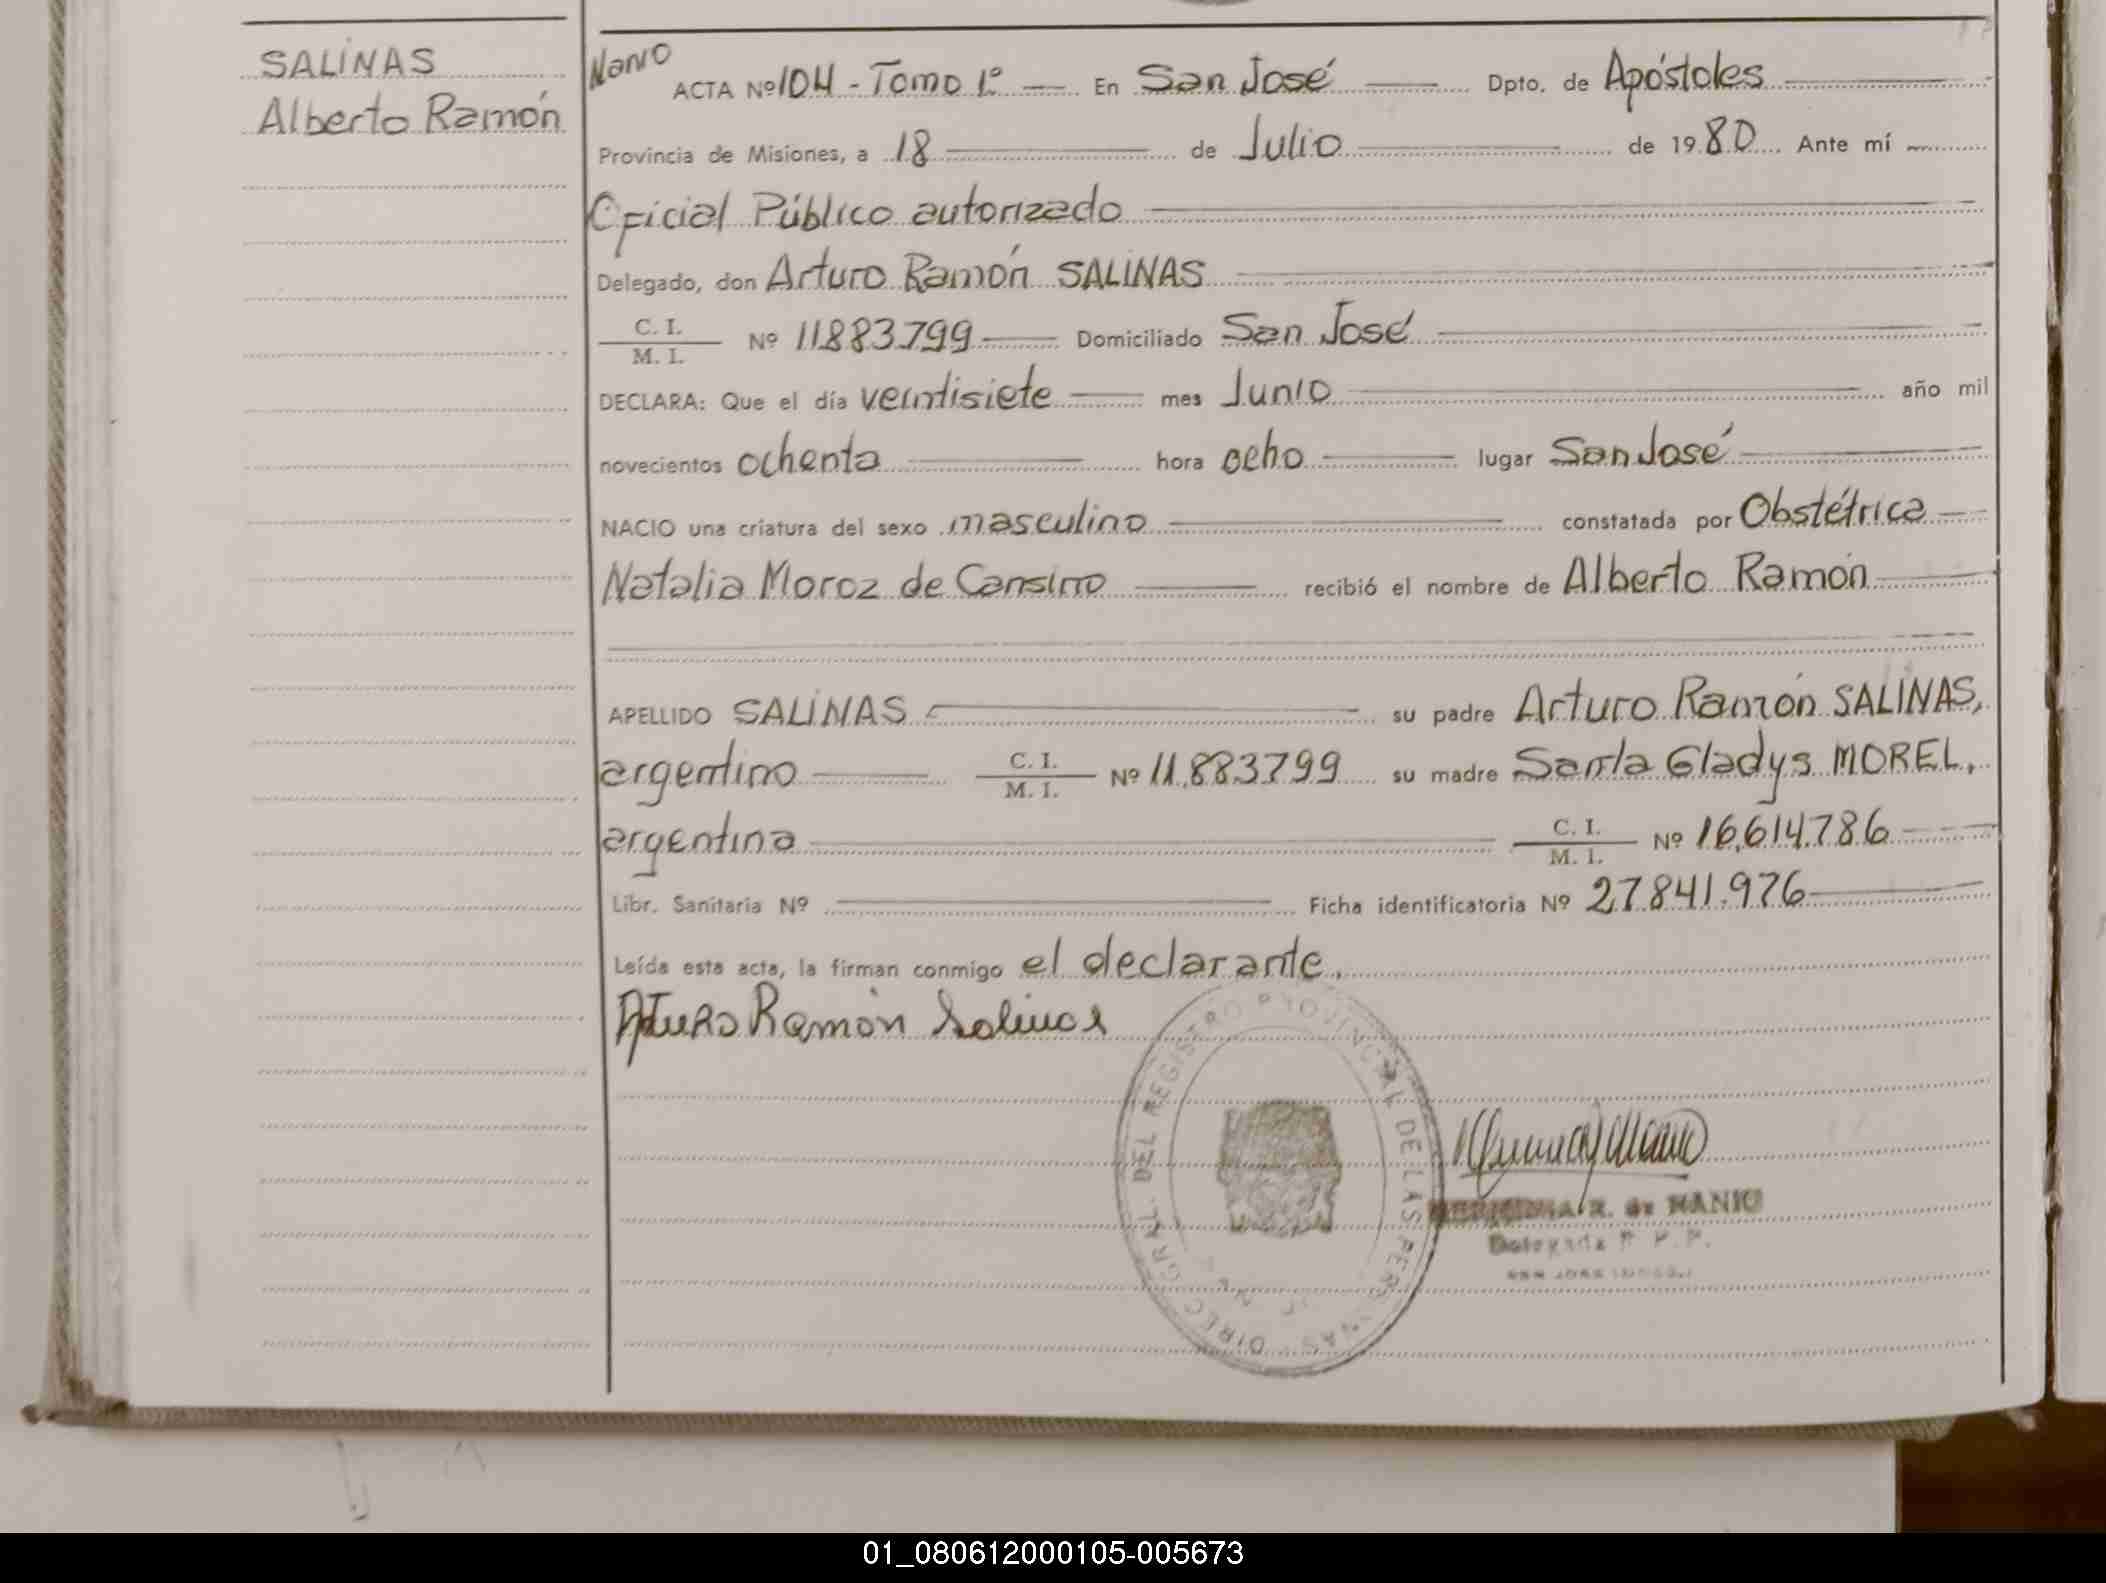 SALINAS
Alberto Ramón
Nano
ACTA Nº 104 - Tomo 1º En San José Dpto. de Apóstoles
Provincia de Misiones, a 18 de Julio de 1980 Ante mí
Oficial Público autorizado
Delegado, don Arturo Ramón SALINAS
C. I.
M. I. Nº 11883799 Domiciliado San José
DECLARA: Que el día veintisiete mes Junio año mil
novecientos ochenta hora ocho lugar San José
NACIO una criatura del sexo masculino constatada por Obstétrica
Natalia Moroz de Cansino recibió el nombre de Alberto Ramón
APELLIDO SALINAS su padre Arturo Ramón SALINAS,
argentino C. I. M. I. Nº 11.883799 su madre Santa Gladys MOREL,
argentina C. I. M. I. Nº 16.614.786
Libr. Sanitaria Nº Ficha identificatoria Nº 27.841.976
Leída esta acta, la firman conmigo el declarante.
Arturo Ramón Salinas
DIREC. GRAL. DEL REGISTRO PROVINCIAL DE LAS PERSONAS
R. de NANIU
Delegada R. P. P.
01_080612000105-005673